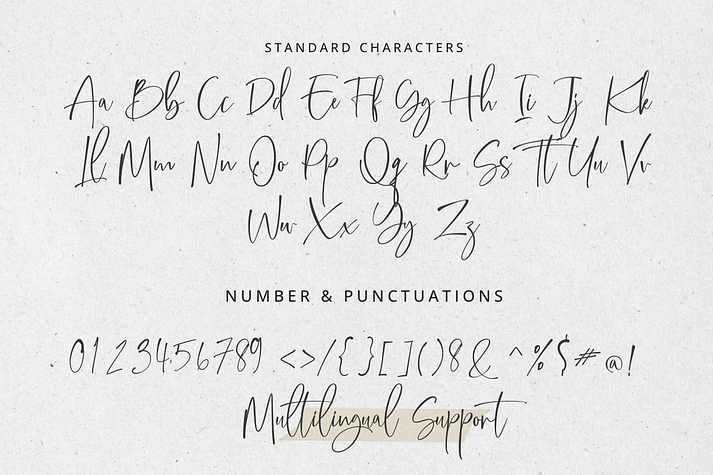 STANDARD CHARACTERS
Aa Bb Cc Dd Ee Ff Gg Hh Ii Jj Kk
Ll Mm Nn Oo Pp Qq Rr Ss Tt Uu Vv
Ww Xx Yy Zz
NUMBER & PUNCTUATIONS
0123456789 <>/{}[]()8& ^%$#@!
Multilingual Support